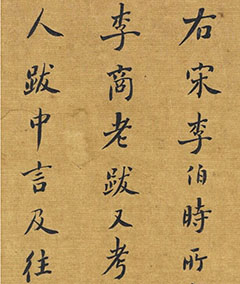 右宋李伯時所
李商老跋又考
人跋中言及往